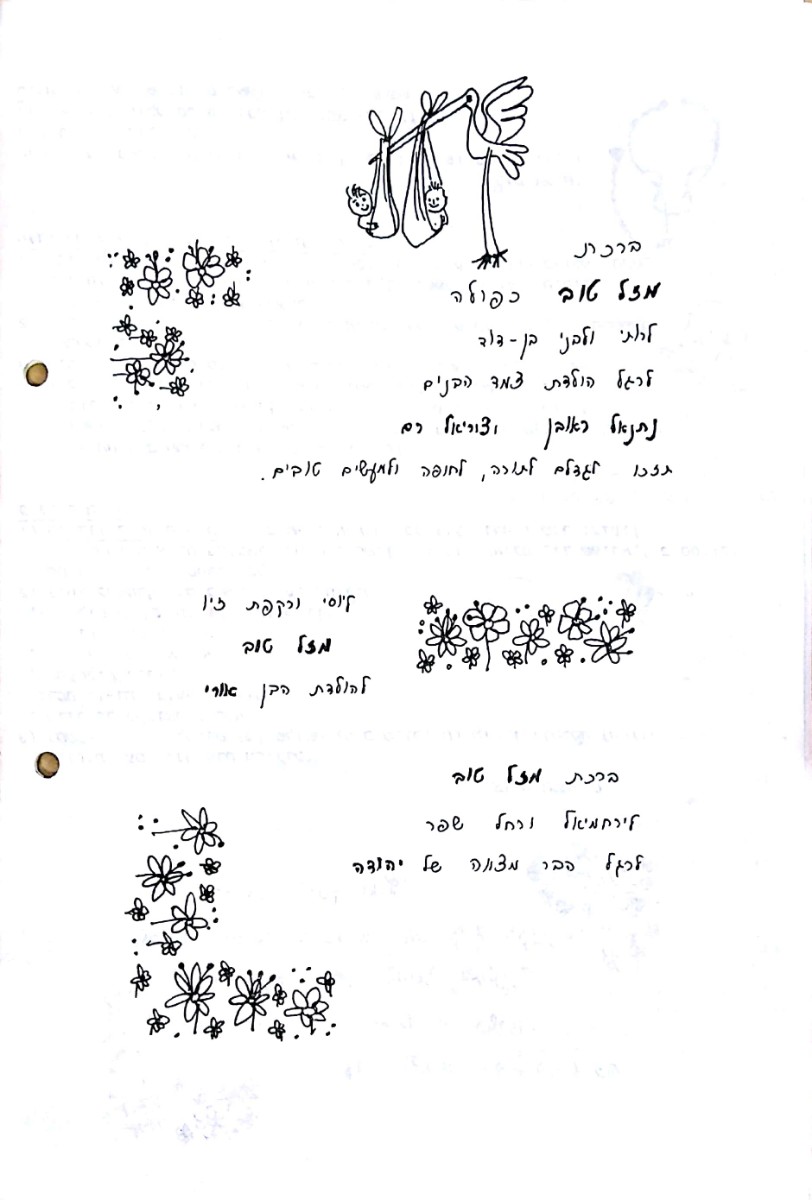 ברכת
מזל טוב כפולה
לרותי ולבני בן-דוד
לרגל הולדת צמד הבנים
נתנאל ראובן וצוריאל רם
תזכו לגדלם לתורה, לחופה ולמעשים טובים.
ליוסי ורקפת זיו
מזל טוב
להולדת הבן אורי
ברכת מזל טוב
לירחמיאל ורחל שפר
לרגל הבר מצווה של יהודה